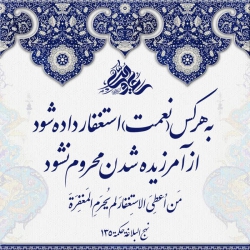 به هر کس (نعمت) استغفار داده شود
از آمرزیده شدن محروم نشود
مَن اُعطِیَ الاستغفارَ لم یُحرَمِ المَغفِرَةَ
نهج البلاغه حکمة ۱۳۵